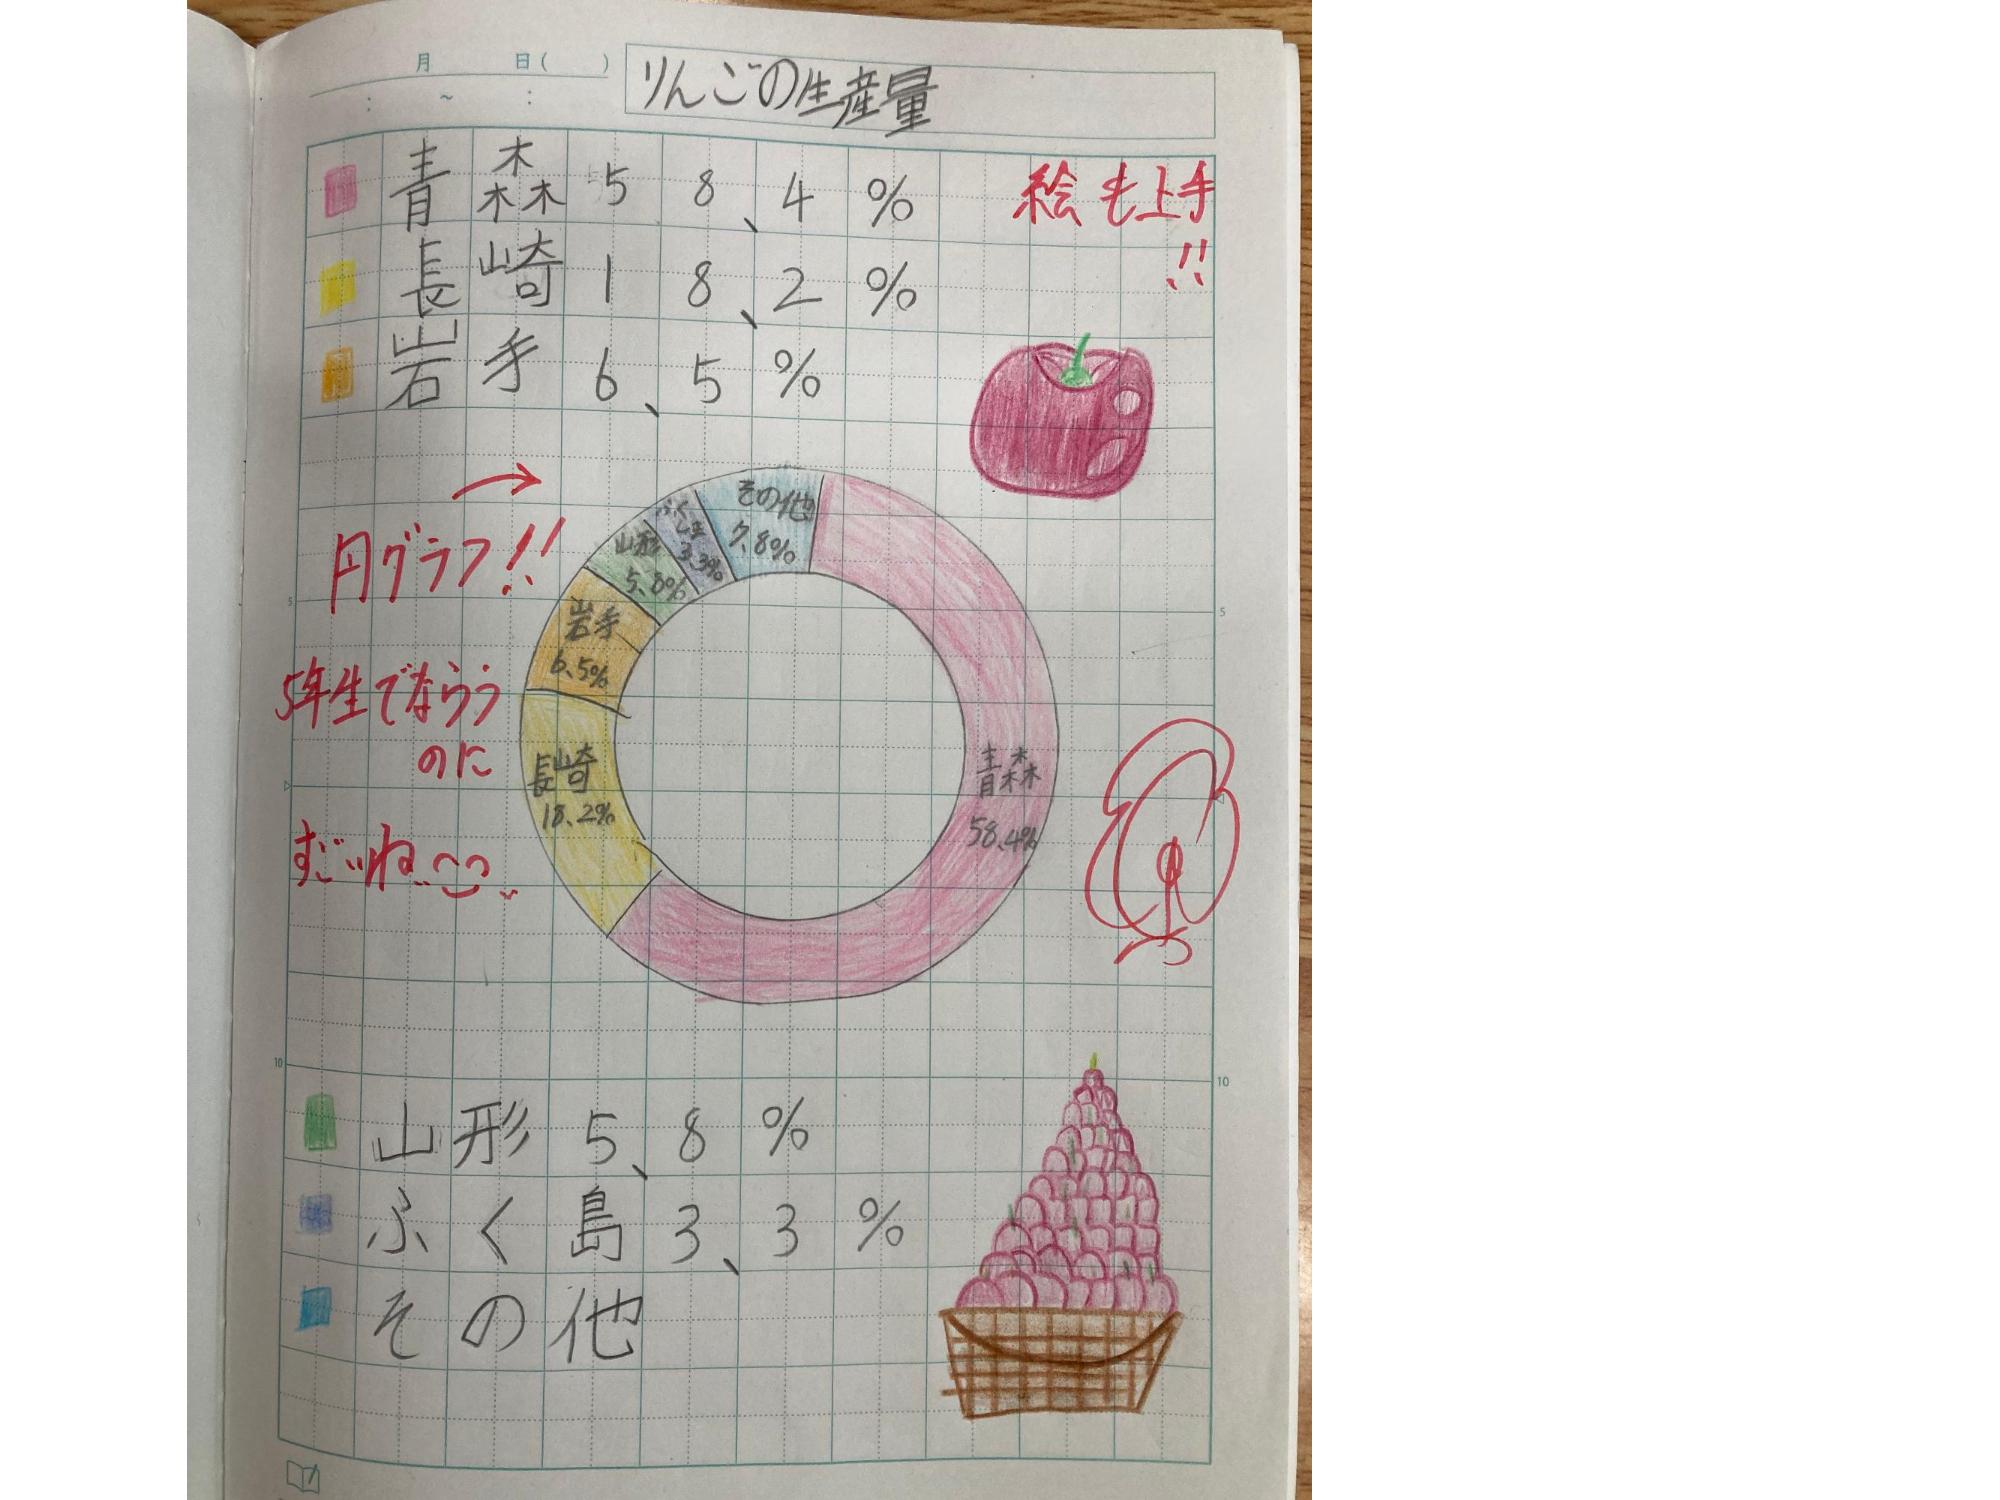 月 日( )
: ～ :
りんごの生産量
青森58、4%
絵も上手!!
長崎18、2%
岩手6、5%
円グラフ!!
5年生でならうのに
すごいね
その他
7、8%
ふくしま
3、3%
山形
5、8%
岩手
6、5%
長崎
18、2%
青森
58、4%
5
5
10
10
山形5、8%
ふく島3、3%
その他